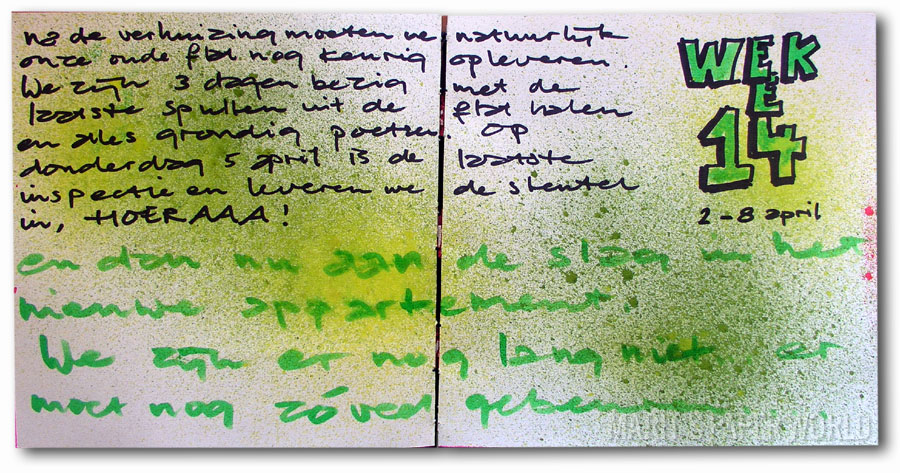 na de verhuizing moeten we natuurlijk
onze oude flat nog keurig opleveren.
We zijn 3 dagen bezig met de
laatste spullen uit de flat halen
en alles grondig poetsen. Op
donderdag 5 april is de laatste
inspectie en leveren we de sleutel
in, HOERAAA!
WEEK
14
2-8 april
en dan nu aan de slag in het
nieuwe appartement.
We zijn er nog lang niet, er
moet nog zóveel gebeuren...
MARIT'S PAPER WORLD